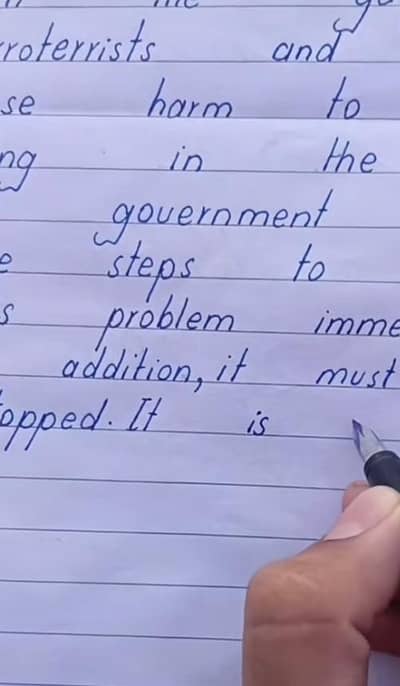 roterrists and
se harm to
ng in the
government
e steps to
s problem imme
addition, it must
opped. It is